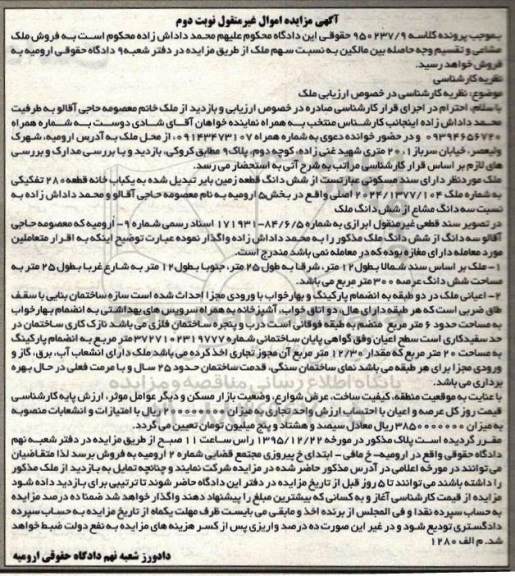 آگهی مزایده اموال غیرمنقول نوبت دوم
بموجب پرونده کلاسه ۹۵۰۲۳۷/۹ حقوقی این دادگاه محکوم علیهم محمد داداش زاده محکوم است به فروش ملک
مشاعی و تقسیم وجه حاصله بین مالکین به نسبت سهم ملک از طریق مزایده در دفتر شعبه۹ دادگاه حقوقی ارومیه به
فروش خواهد رسید.
نظریه کارشناسی
موضوع: نظریه کارشناسی در خصوص ارزیابی ملک
با سلام، احترام در اجرای قرار کارشناسی صادره در خصوص ارزیابی و بازدید از ملک خانم معصومه حاجی آقالو به طرفیت
محمد داداش زاده اینجانب کارشناس منتخب به همراه نماینده خواهان آقای شادی دوست به شماره همراه
۰۹۳۹۴۶۵۶۷۲۰ و در حضور خوانده دعوی به شماره همراه ۰۹۱۴۳۴۷۳۱۰۷ از محل ملک به آدرس ارومیه، شهرک
ولیعصر، خیابان سرباز۱، ۲۰ متری شهید غنی زاده، کوچه دوم، پلاک۹ مطابق کروکی، بازدید و با بررسی مدارک و بررسی
های لازم بر اساس قرار کارشناسی مراتب به شرح آتی به استحضار می رسد.
ملک موردنظر دارای سند مسکونی عبارتست از شش دانگ قطعه زمین بایر تبدیل شده به یکباب خانه قطعه۲۸۰ تفکیکی
به شماره ملک ۲۰۲۴/۱۳۷۷/۱۰۴ اصلی واقع در بخش۵ ارومیه به نام معصومه حاجی آقالو و محمد داداش زاده به
نسبت سه دانگ مشاع از شش دانگ ملک
در تصویر سند قطعی غیرمنقول ابرازی به شماره ۸۴/۶/۵-۱۷۱۹۳۱ اسناد رسمی شماره ۹- ارومیه که معصومه حاجی
آقالو سه دانگ از شش دانگ ملک مذکور را به محمد داداش زاده واگذار نموده عبارت توضیح اینکه به اقرار متعاملین
مورد معامله دارای مغازه بوده که در معامله نمی باشد مندرج است.
۱- ملک بر اساس سند شمالا بطول۱۲ متر، شرقا به طول ۲۵ متر، جنوبا بطول۱۲ متر به شارع غربا بطول ۲۵ متر به
مساحت شش دانگ عرصه ۳۰۰ متر مربع می باشد.
۲- اعیانی ملک در دو طبقه به انضمام پارکینگ و بهارخواب با ورودی مجزا احداث شده است سازه ساختمان بنایی با سقف
طاق ضربی است که هر طبقه دارای هال، دو اتاق خواب، آشپزخانه به همراه سرویس های بهداشتی به انضمام بهارخواب
به مساحت حدود ۶ متر مربع منضم به طبقه فوقانی است درب و پنجره ساختمان فلزی می باشد نازک کاری ساختمان در
حد سفیدکاری است سطح اعیان وفق گواهی پایان ساختمانی شماره ۳۷۲۷۱۰۲۳۱۹۷۷۷ متر مربع به انضمام پارکینگ
به مساحت ۲۰ متر مربع که مقدار ۱۲/۳۰ متر مربع آن مجوز تجاری اخذ کرده می باشد ملک دارای انشعاب آب، برق، گاز و
ورودی مجزا برای هر طبقه می باشد نمای ساختمان سنگی، قدمت ساختمان حدود ۲۵ سال و با مرمت فعلی در حال بهره
برداری می باشد.
با عنایت به موقعیت منطقه، کیفیت ساخت، عرض شوارع، وضعیت بازار مسکن و دیگر عوامل موثر، ارزش پایه کارشناسی
قیمت روز کل عرصه و اعیان با احتساب ارزش واحد تجاری به میزان ریال با امتیازات و انشعابات منصوبه
به میزان ۳۸۵۰۰۰۰۰۰۰ ریال معادل سیصد و هشتاد و پنج میلیون تومان تعیین می گردد.
مقرر گردیده است پلاک مذکور در مورخه ۱۳۹۵/۱۲/۲۲ راس ساعت ۱۱ صبح از طریق مزایده در دفتر شعبه نهم
دادگاه حقوقی واقع در ارومیه- خ مافی - ابتدای خ پیروزی مجتمع قضایی شماره ۲ ارومیه به فروش برسد لذا متقاضیان
می توانند در مورخه اعلامی در آدرس مذکور حاضر شده در مزایده شرکت نمایند و چنانچه تمایل به بازدید از ملک مذکور
را داشته باشند می توانند تا ۵ روز قبل از تاریخ مزایده در دفتر این دادگاه حاضر شوند تا ترتیبی برای بازدید داده شود
مزایده از قیمت کارشناسی آغاز و به کسانی که بیشترین مبلغ را پیشنهاد دهند واگذار خواهد شد ضمنا ده درصد مزایده
به حساب سپرده نقدا و فی المجلس از برنده اخذ و مابقی می بایست ظرف مهلت یکماه از تاریخ مزایده به حساب سپرده
دادگستری تودیع شود و در غیر این صورت ده درصد واریزی پس از کسر هزینه های مزایده به نفع دولت ضبط خواهد
شد. م الف ۱۲۸۰
دادورز شعبه نهم دادگاه حقوقی ارومیه
پایگاه اطلاع رسانی مناقصه و مزایده